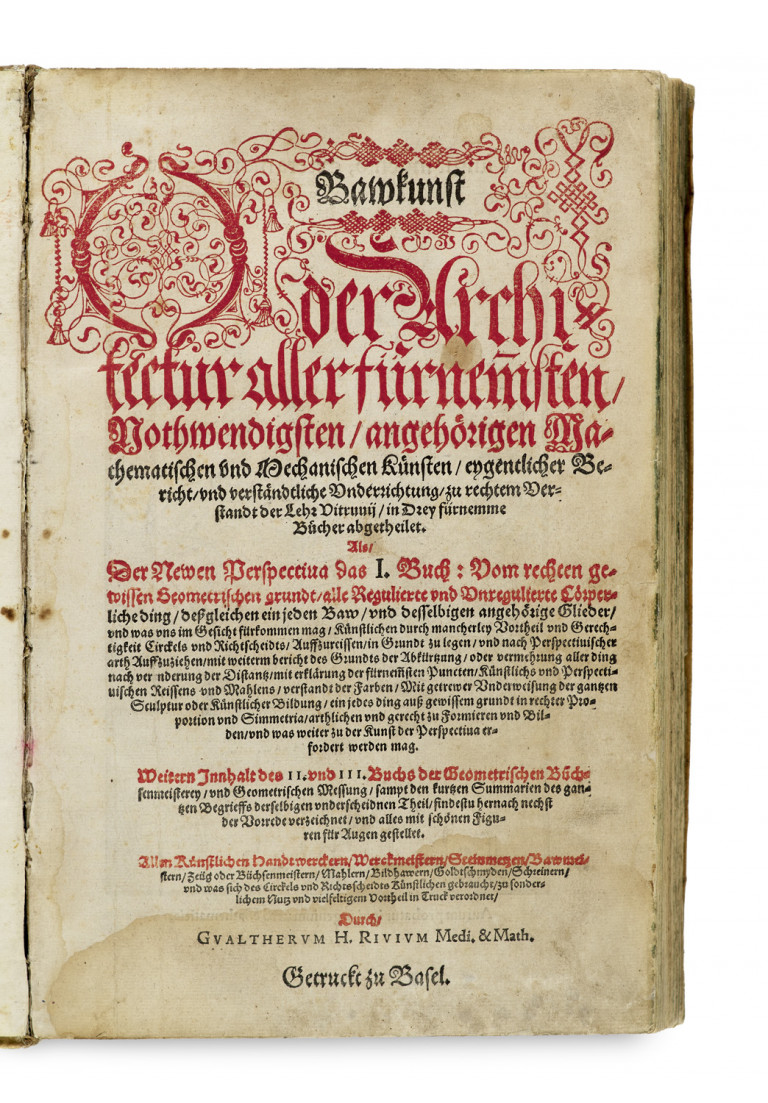 Bawkunst
Oder Archi-
tectur aller fürnem̃sten/
Nothwendigsten/ angehörigen Ma-
thematischen vnd Mechanischen Künsten/ eygentlicher Be-
richt/ vnd verständtliche Vnderrichtung/ zu rechtem Ver-
standt der Lehr Vitruuij/ in Drey fürnemme
Bücher abgetheilet.
Als/
Der Newen Perspectiua das I. Buch: Vom rechten ge-
wissen Geometrischen grundt/ alle Regulierte vnd Vnregulierte Cörper-
liche ding/ deßgleichen ein jeden Baw/ vnd desselbigen angehörige Glieder/
vnd was vns im Gesicht fürkommen mag/ Künstlichen durch mancherley Vortheil vnd Gerech-
tigkeit Circkels vnd Richtscheidts/ Auffzureissen/ in Grundt zu legen/ vnd nach Perspectiuischer
arth Auffzuziehen/ mit weiterm bericht des Grundts der Abkürtzung/ oder vermehrung aller ding
nach ver nderung der Distantz/ mit erklärung der fürnem̃sten Puncten/ Künstlichs vnd Perspecti-
uischen Reissens vnd Mahlens/ verstandt der Farben/ Mit getrewer Vnderweisung der gantzen
Sculptur oder Künstlicher Bildung/ ein jedes ding auß gewissem grundt in rechter Pro-
portion vnd Simmetria/ arthlichen vnd gerecht zu Formieren vnd Bil-
den/ vnd was weiter zu der Kunst der Perspectiua er-
fordert werden mag.
Weitern Innhalt des II. vnd III. Buchs der Geometrischen Büch-
senmeisterey/ vnd Geometrischen Messung/ sampt den kurtzen Summarien des gan-
tzen Begrieffs derselbigen vnderscheidnen Theil/ findestu hernach nechst
der Vorrede verzeichnet/ vnd alles mit schönen Figu-
ren für Augen gestellet.
Allen Künstlichen Handtwerckern/ Werckmeistern/ Steinmetzen/ Bawmei-
stern/ Zeüg oder Büchsenmeistern/ Mahlern/ Bildhawern/ Goldtschmyden/ Schreinern/
vnd was sich des Circkels vnd Richtscheidts Künstlichen gebraucht/ zu sonder-
lichem Nutz vnd vielfeltigem Vortheil in Truck verordnet/
Durch/
GVALTHERVM H. RIVIVM Medi. & Math.
Getruckt zu Basel.